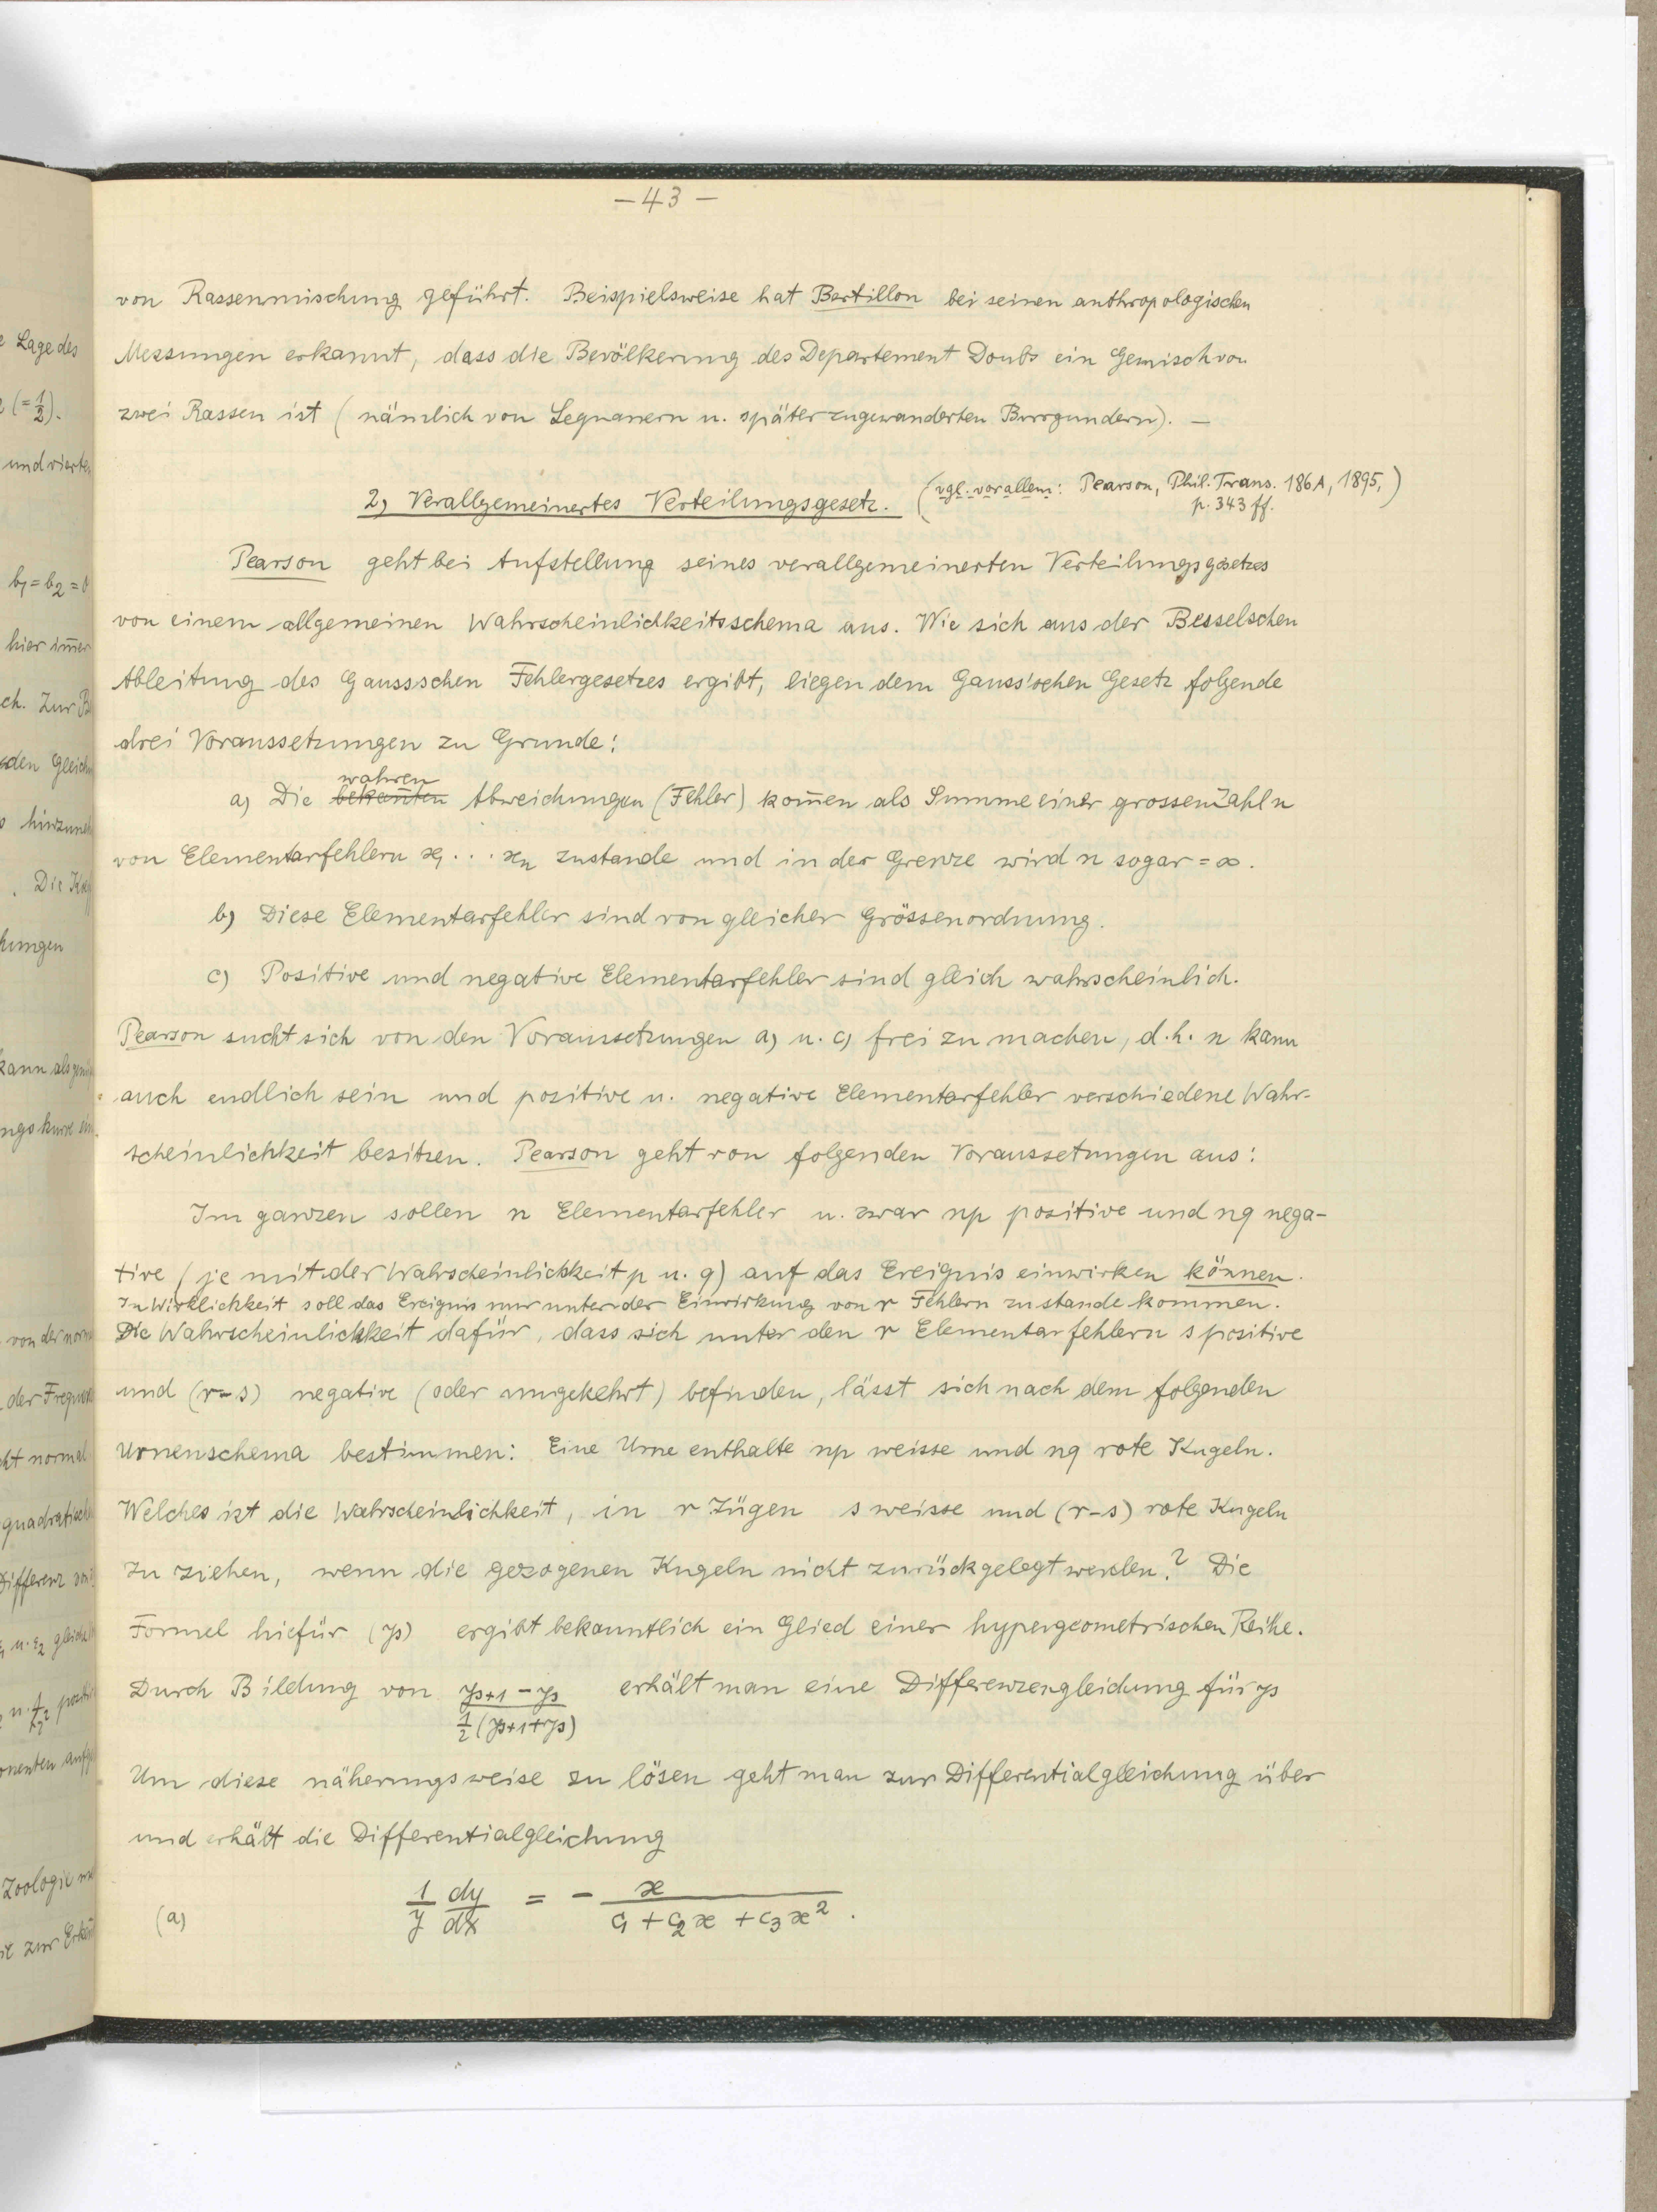 e Lage des
(= 1/2).
und vierte
b1 = b2 = 0
hier im̄er
ch. Zur B
den Gleich
hinzuneh
. Die K
hungen
kann als
ngskurve
von der norm
der Frequen
cht normal
quadratisch
Differenz
u. ε2 gleich
u.
onenten aufg
Zoologie
zur Erkēn
- 43 -
von Rassenmischung geführt. Beispielsweise hat Bertillon bei seinen anthropologischen
Messungen erkannt, dass die Bevölkerung des Departement Doubs ein Gemisch von
zwei Rassen ist (nämlich von Sequanern u. später zugewanderten Burgundern). –
2) Verallgemeinertes Verteilungsgesetz. (vgl. vor allem: Pearson, Phil. Trans. 186A, 1895,
p. 343 ff.)
Pearson geht bei Aufstellung seines verallgemeinerten Verteilungsgesetzes
von einem allgemeinen Wahrscheinlichkeitsschema aus. Wie sich aus der Besselschen
Ableitung des Gaussschen Fehlergesetzes ergibt, liegen dem Gauss'schen Gesetz folgende
drei Voraussetzungen zu Grunde:
wahren
a) Die bekan̄ten Abweichungen (Fehler) kom̄en als Summe einer grossen Zahl n
von Elementarfehlern x1 . . . xn zustande und in der Grenze wird n sogar = ∞.
b) Diese Elementarfehler sind von gleicher Grössenordnung.
c) Positive und negative Elementarfehler sind gleich wahrscheinlich.
Pearson sucht sich von den Voraussetzungen a) u. c) frei zu machen, d.h. n kann
auch endlich sein und positive u. negative Elementarfehler verschiedene Wahr-
scheinlichkeit besitzen. Pearson geht von folgenden Voraussetungen aus:
Im ganzen sollen n Elementarfehler u. zwar np positive und nq nega-
tive (je mit der Wahrscheinlichkeit p u. q) auf das Ereignis einwirken können.
In Wirklichkeit soll das Ereignis nur unter der Einwirkung von r Fehlern zustande kommen.
Die Wahrscheinlichkeit dafür, dass sich unter den r Elementarfehlern s positive
und (r-s) negative (oder umgekehrt) befinden, lässt sich nach dem folgenden
Urnenschema bestimmen: Eine Urne enthalte np weisse und nq rote Kugeln.
Welches ist die Wahrscheinlichkeit, in r Zügen s weisse und (r-s) rote Kugeln
zu ziehen, wenn die gezogenen Kugeln nicht zurückgelegt werden? Die
Formel hiefür (ys) ergibt bekanntlich ein Glied einer hypergeometrischen Reihe.
Durch Bildung von (ys+1 - ys) / (1/2 (ys+1 + ys)) erhält man eine Differenzengleichung für ys
Um diese näherungsweise zu lösen geht man zur Differentialgleichung über
und erhält die Differentialgleichung
(a) 1/y dy/dx = - x / (c1 + c2 x + c3 x²) .